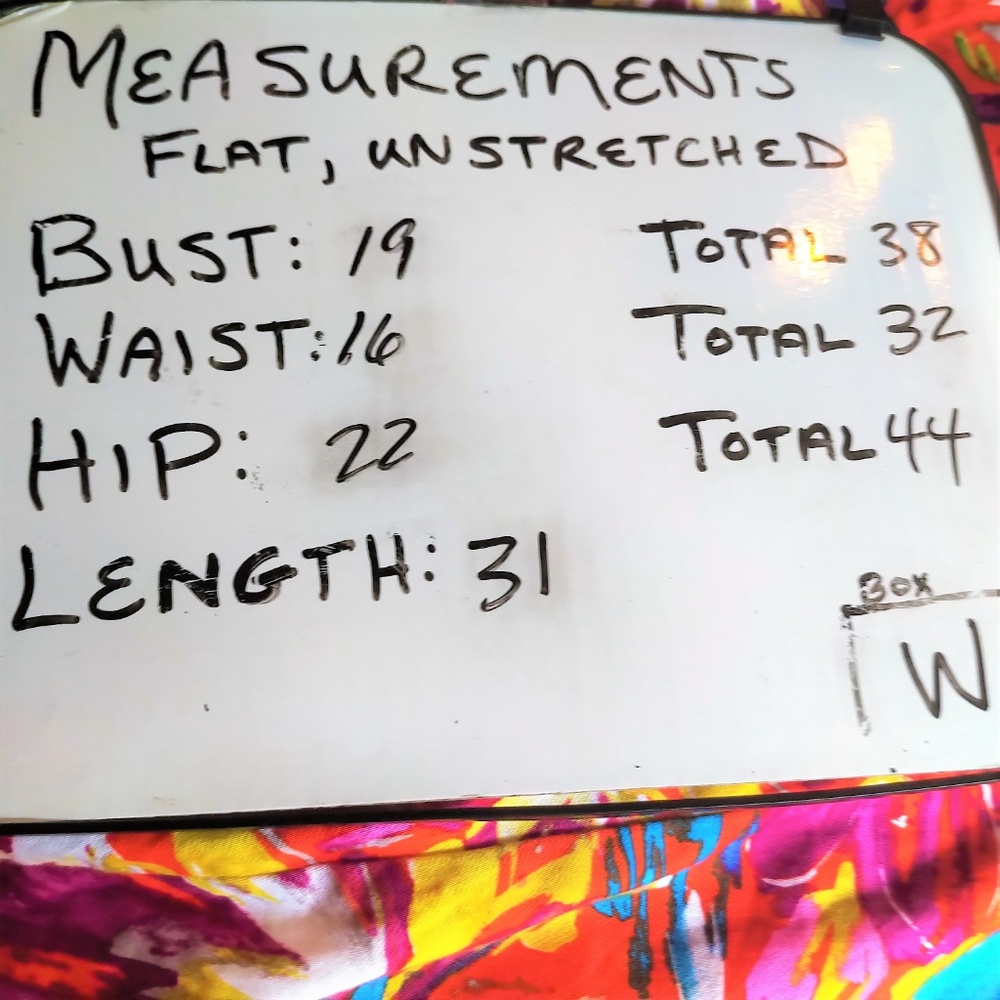 MEASUREMENTS
FLAT, UNSTRETCHED
BUST: 19 TOTAL 38
WAIST: 16 TOTAL 32
HIP: 22 TOTAL 44
LENGTH: 31
BOX
W